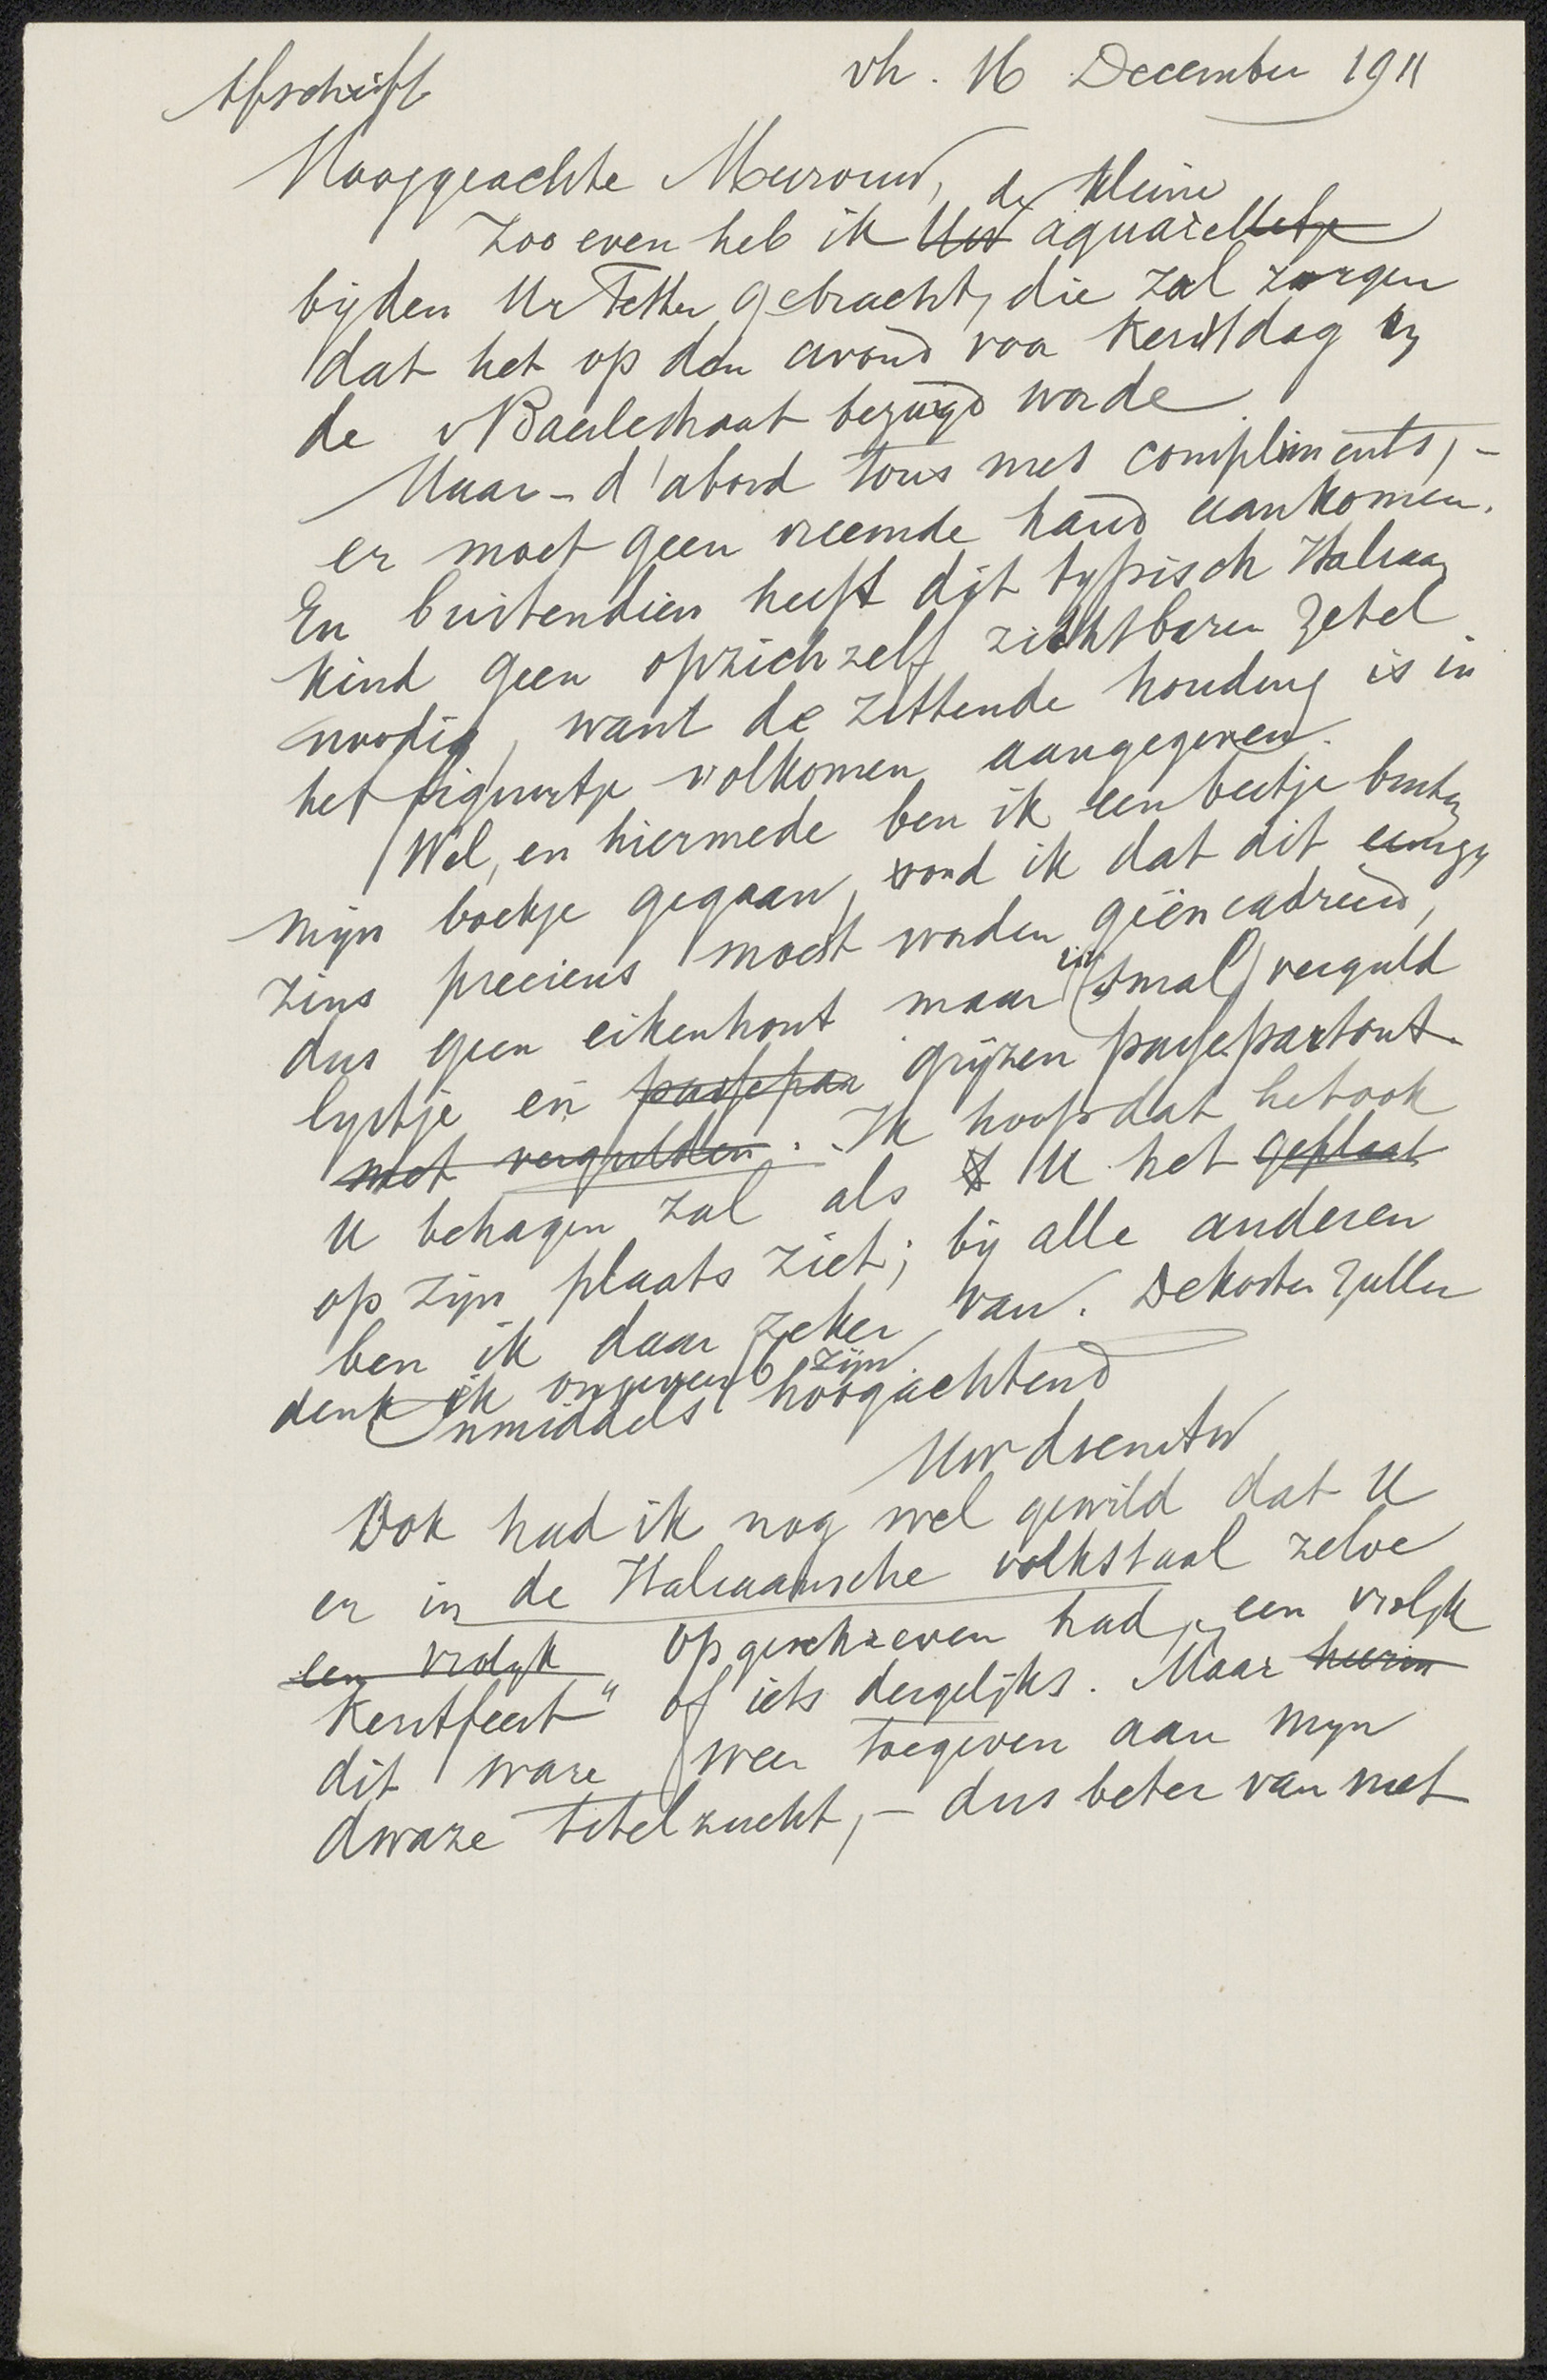 Afschrift
vh. 16 December 1911
Hooggeachte Mevrouw,
de kleine
Zoo even heb ik Uw aquarelletje
bij den Hr Tetter gebracht, die zal zorgen
dat het op den avond voor Kerstdag in
de v Baerlestraat bezorgd worde.
Maar - d'abord tous mes compliments, -
er moet geen vreemde hand aankomen.
En buitendien heeft dit typisch Italiaan
kind geen opzichzelf zichtbaren zetel
noodig, want de zittende houding is in
het figuurtje volkomen aangegeven.
Wel, en hiermede ben ik een beetje buiten
mijn boekje gegaan, vond ik dat dit eenigs
zins precieus moest worden geëncadreerd,
dus geen eikenhout maar in (smal) verguld
lijstje en passepar grijzen passepartout.
met vergulden. Ik hoop dat het ook
U behagen zal als U het geplaat
op zijn plaats ziet; bij alle anderen
ben ik daar zeker van. De kosten zullen
denk ik ongeveer 6 zijn
Inmiddels hoogachtend
Uw dienstw
Ook had ik nog wel gewild dat U
er in de Italiaansche volkstaal zelve
een vrolijk opgeschreven had „een vrolijk
Kerstfeest" of iets dergelijks. Maar hierin
dit ware weer toegeven aan mijn
dwaze titelzucht, - dus beter van niet